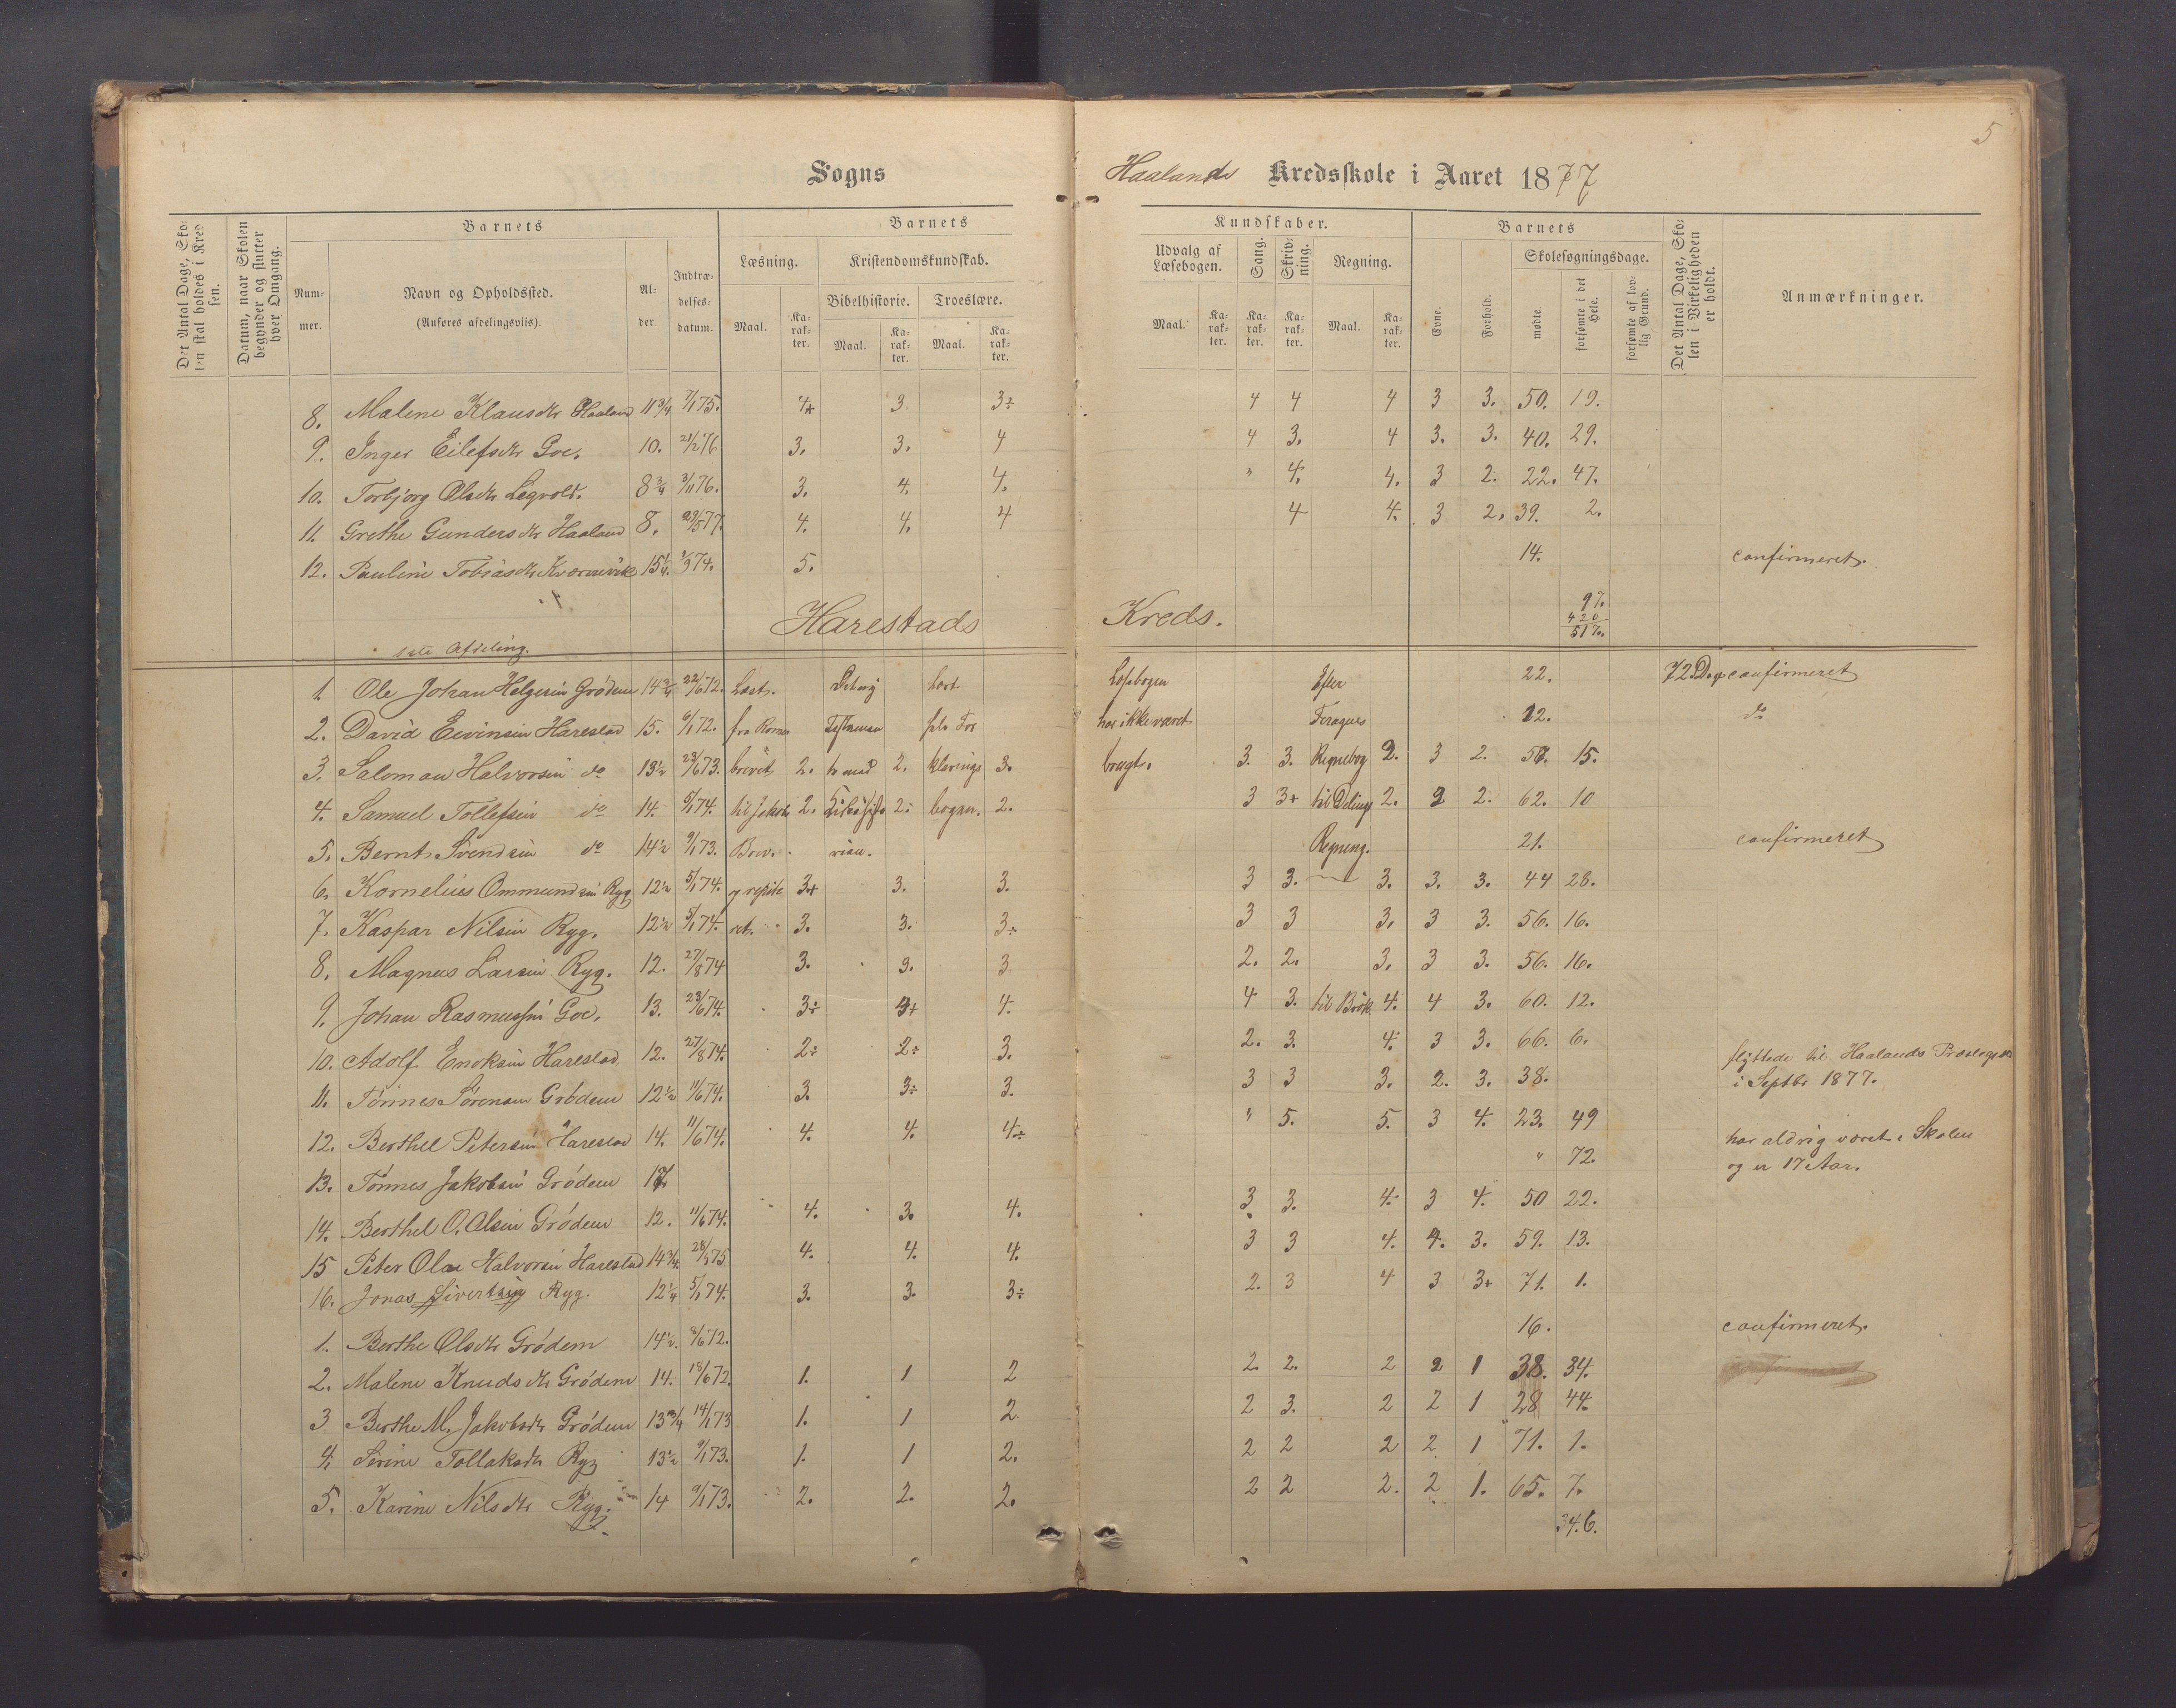 5
Sogns Haalands Kredsskole i Aaret 1877
Det Antal Dage, Sko-
len skal holdes i Kred
sen.
Datum, naar Skolen
begynder og slutter
hver Omgang.
Barnets
Num-
mer.
Navn og Opholdssted.
(Anføres afdelingsviis).
Al-
der.
Indtræ-
delses-
datum.
Barnets
Læsning.
Maal.
Ka-
rak-
ter.
Kristendomskundskab.
Bibelhistorie.
Maal.
Ka-
rak-
ter.
Troeslære.
Maal.
Ka-
rak-
ter.
Kundskaber.
Udvalg af
Læsebogen.
Maal.
Ka-
rak-
ter.
Sang.
Ka-
rak-
ter.
Skriv-
ning.
Ka-
rak-
ter.
Regning.
Maal.
Ka-
rak-
ter.
Barnets
Evne.
Forhold.
Skolesøgningsdage.
mødte.
forsømte i det
Hele.
forsømte af lov-
lig Grund.
Det Antal Dage, Sko-
len i Virkeligheden
er holdt.
Anmærkninger.
8. Malene Klausdtr Haaland 11 3/4 7/1 75. 4+ 3 3÷ 4 4 4 3 3. 50. 19.
9. Inger Eilefsdtr Goe. 10. 21/2 76 3. 3. 4 4 3. 4 3. 3. 40. 29.
10. Torbjørg Olsdtr Legvold. 8 3/4 3/11 76. 3. 4. 4. " 4. 4. 3 2. 22. 47.
11. Grethe Gundersdtr Haaland 8. 29/5 77. 4. 4. 4 4 4. 3 2. 39. 2.
12. Pauline Tobiasdtr Kvernevik 15 1/4. 1/9 74. 5. 14. confirmeret.
97.
420
517.
Harestads Kreds.
Afdeling.
1. Ole Johan Helgesen Grødem 14 3/4 22/6 72. Læst. Lært Læsebogen Efter 22. 72 Dage confirmeret
2. David Eivinsen Harestad 15. 6/1 72. fra Romer har ikke været 12. do
3. Saloman Halvorsen do 13 1/2 23/6 73. brevet 2. 2. klarings 3. brugt. 3. 3. Regnebog 2. 3 2. 57. 15.
4. Samuel Tollefsen do 14. 5/1 74. til Jakobs 2. 2. bogen. 2. 3 3+ til Delings 2. 2 2. 62. 10
5. Bernt Svendsen do 14 1/2 9/1 73. Brev. Regning. 21. confirmeret
6. Kornelius Ommundsen Ryg 12 1/2 5/1 74. og repite 3+ 3. 3. 3 3. 3. 3. 3. 44 28.
7. Kaspar Nilsen Ryg. 12 1/2 5/1 74. ret. 3. 3. 3÷ 3 3 3. 3 3. 56. 16.
8. Magnus Larsen Ryg. 12. 27/8 74 3. 3. 3 2. 2. 3. 3 3. 56. 16.
9. Johan Rasmussen Goe. 13. 23/6 74. 3÷ 4. 4 3. til Brøk 4. 4 3. 60. 12.
10. Adolf Enoksen Harestad 12. 27/8 74. 2÷ 2÷ 3. 2. 3. 4. 3 3. 66. 6.
11. Tønnes Sørensen Grødem 12 1/2 11/6 74. 3. 3÷ 3. 3 3 3. 2. 3. 38. flyttede til Haalands Præstegjæld
i Septbr 1877.
12. Berthel Petersen Harestad 14. 11/6 74. 4. 4. 4÷ " 5. 5. 3 4. 23. 49
13. Tønnes Jakobsen Grødem 17. " 72. har aldrig været i Skolen
og er 17 Aar.
14. Berthel O. Olsen Grødem 12. 11/6 74. 4. 3. 4. 3 3. 4. 3 4. 50 22.
15 Peter Olai Halvorsen Harestad 14 3/4 28/1 75 4. 4. 4. 3 3 4. 4. 3. 59. 13.
16. Jonas Sivertsen Ryg. 12 1/4 5/1 74. 3. 3. 3÷ 2. 3 4 3 3+ 71. 1.
1. Berthe Olsdtr Grødem 14 1/2. 8/6 72. 16. confirmeret.
2. Malene Knudsdtr Grødem 14. 18/6 72. 1. 1 2 2. 2. 2 2 1 38. 34.
3 Berthe M. Jakobsdtr Grødem 13 3/4 14/1 73 1. 1 2 2 3. 2 2 1 28 44.
4. Serine Tollaksdtr Ryg 13 1/2 9/1 73. 1. 1 2. 2 2 2 2 1 71. 1.
5. Karine Nilsdtr Ryg. 14 9/1 73. 2. 2. 2. 2 2 2. 2 1. 65. 7.
346.